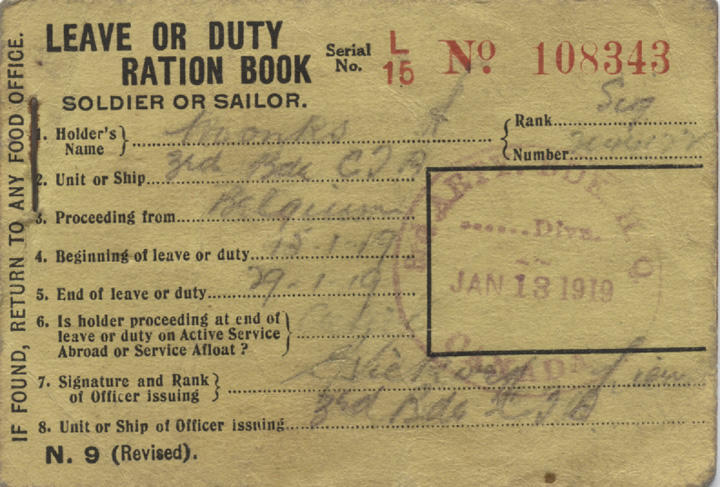 LEAVE OR DUTY
RATION BOOK
SOLDIER OR SAILOR.
Serial No. L 15 No 108343
IF FOUND, RETURN TO ANY FOOD OFICE.
1. Holder's Name } Monks A
{ Rank Sig
Number
2. Unit or Ship 3rd Bde C F A
3. Proceeding from Belgium
4. Beginning of leave or duty 15-1-19
5. End of leave or duty 29-1-19
6. Is holder proceeding at end of leave or duty on Active Service Abroad or Service Afloat ? }
7. Signature and Rank of Officer issuing } Lieut
8. Unit or Ship of Officer issuing 3rd Bde C F A
N. 9 (Revised).
Divs.
JAN 13 1919
CANADA